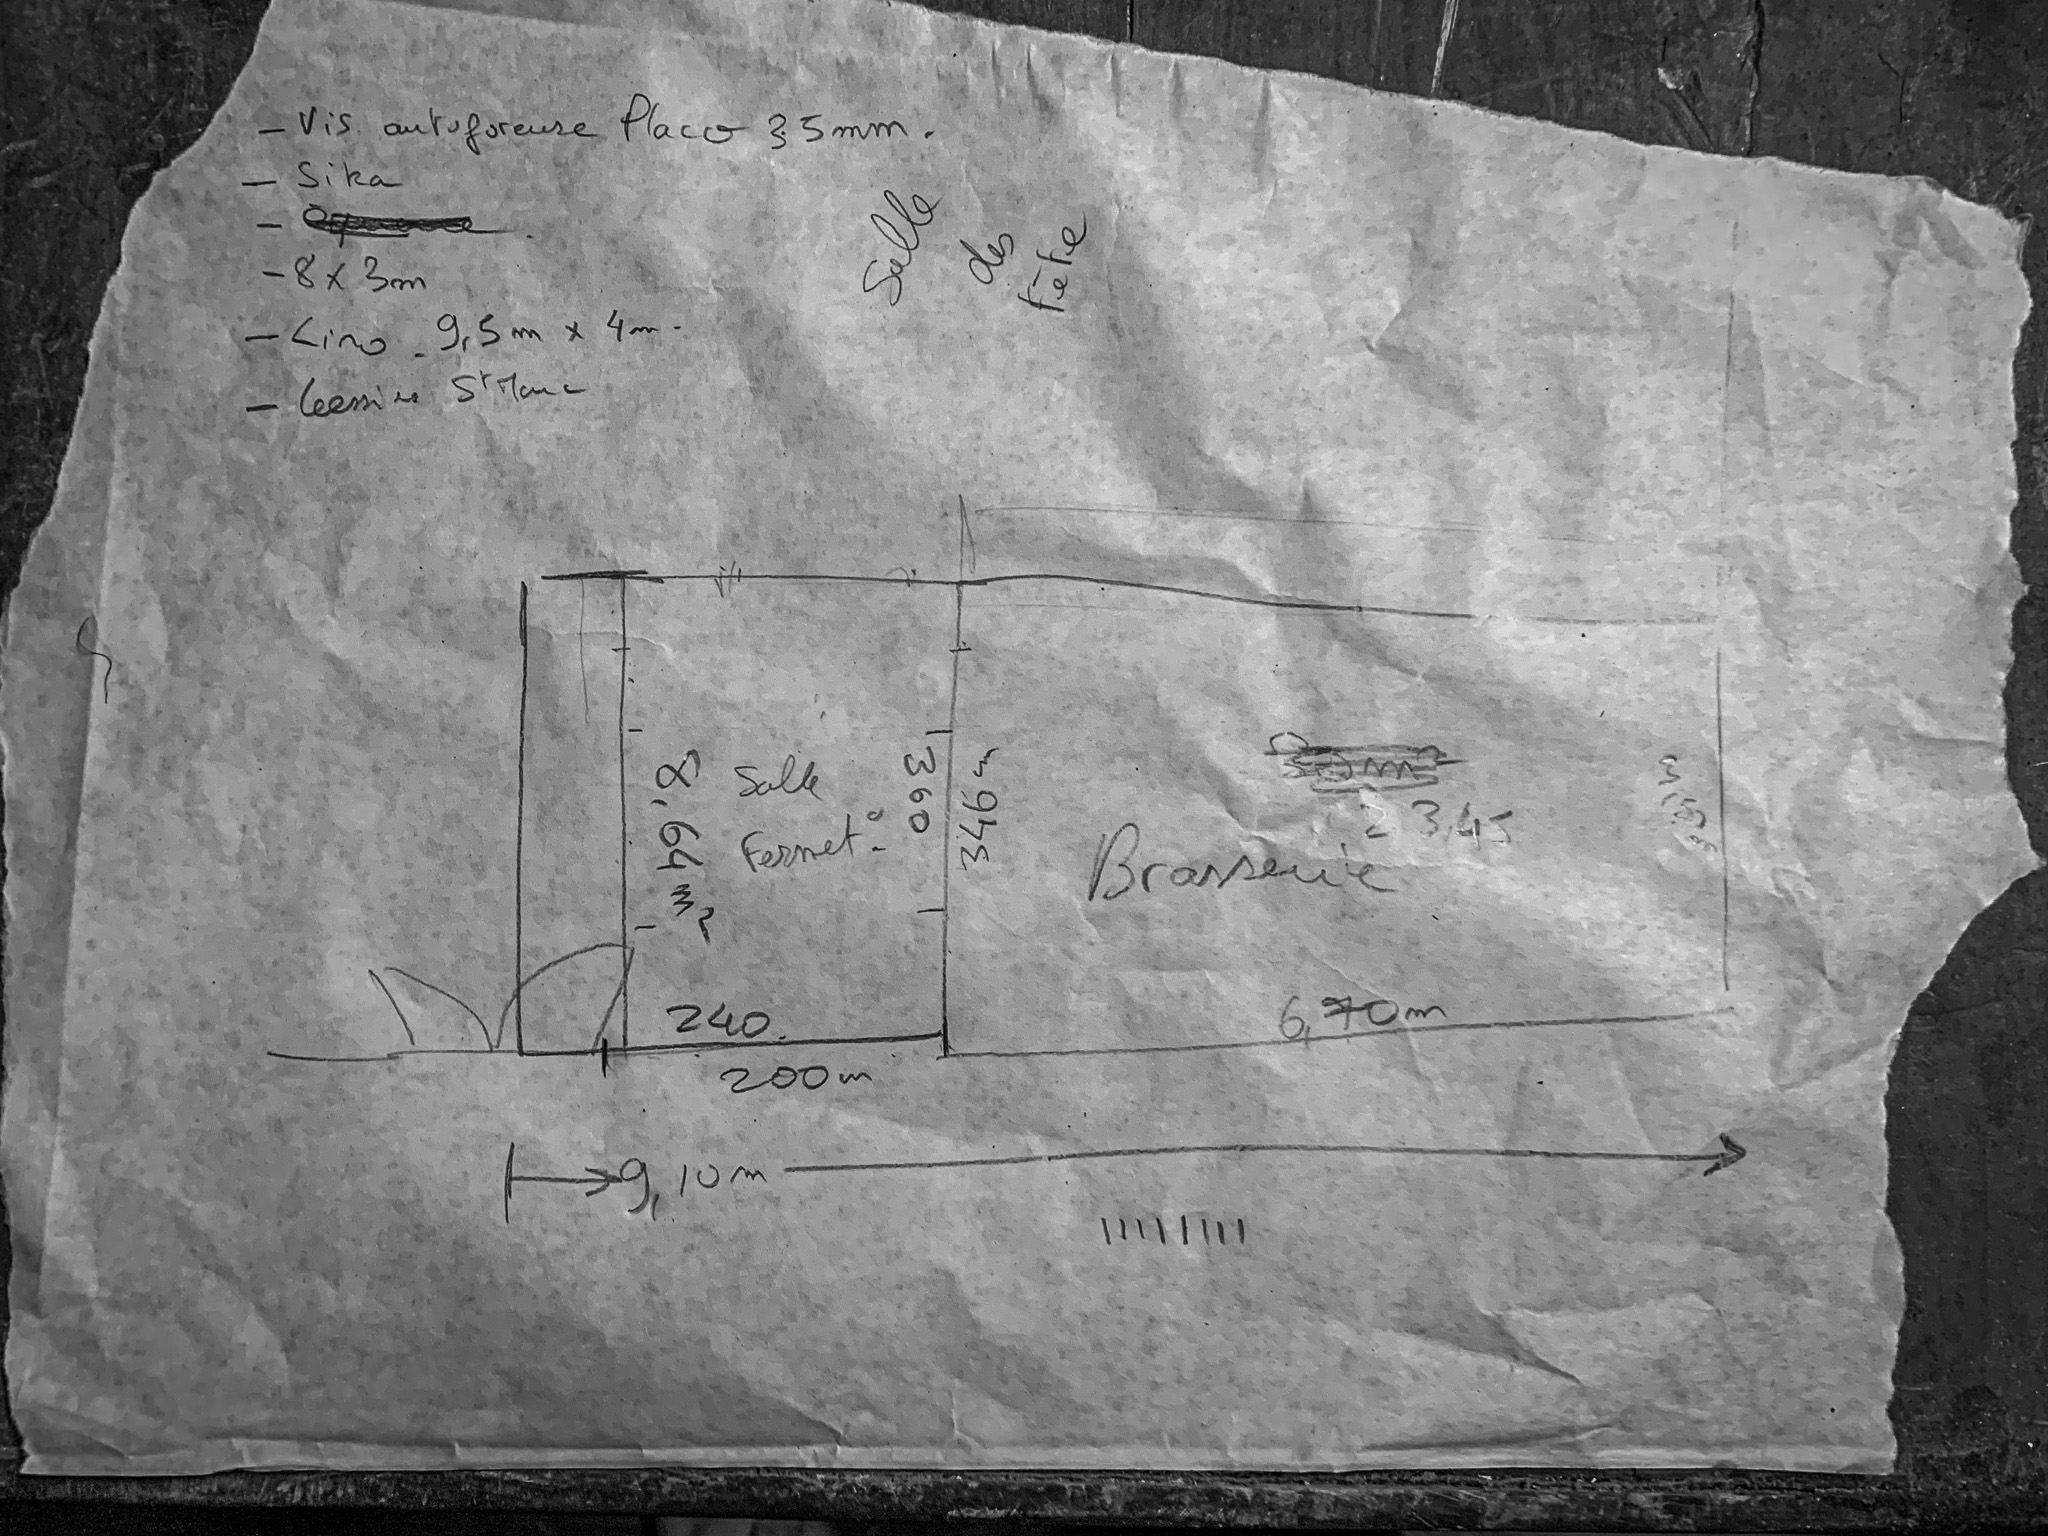 - Vis autoforeuse Placo 35mm.
- Sika
-
- 8 x 3m
- Lino - 9,5m x 4m-
- Lessive St Marc
Salle
des
Fête
8,64 m²
Salle
Fermet°
360
346 m
2 3,45
Brasserie
240.
200m
6,70m
9,10m